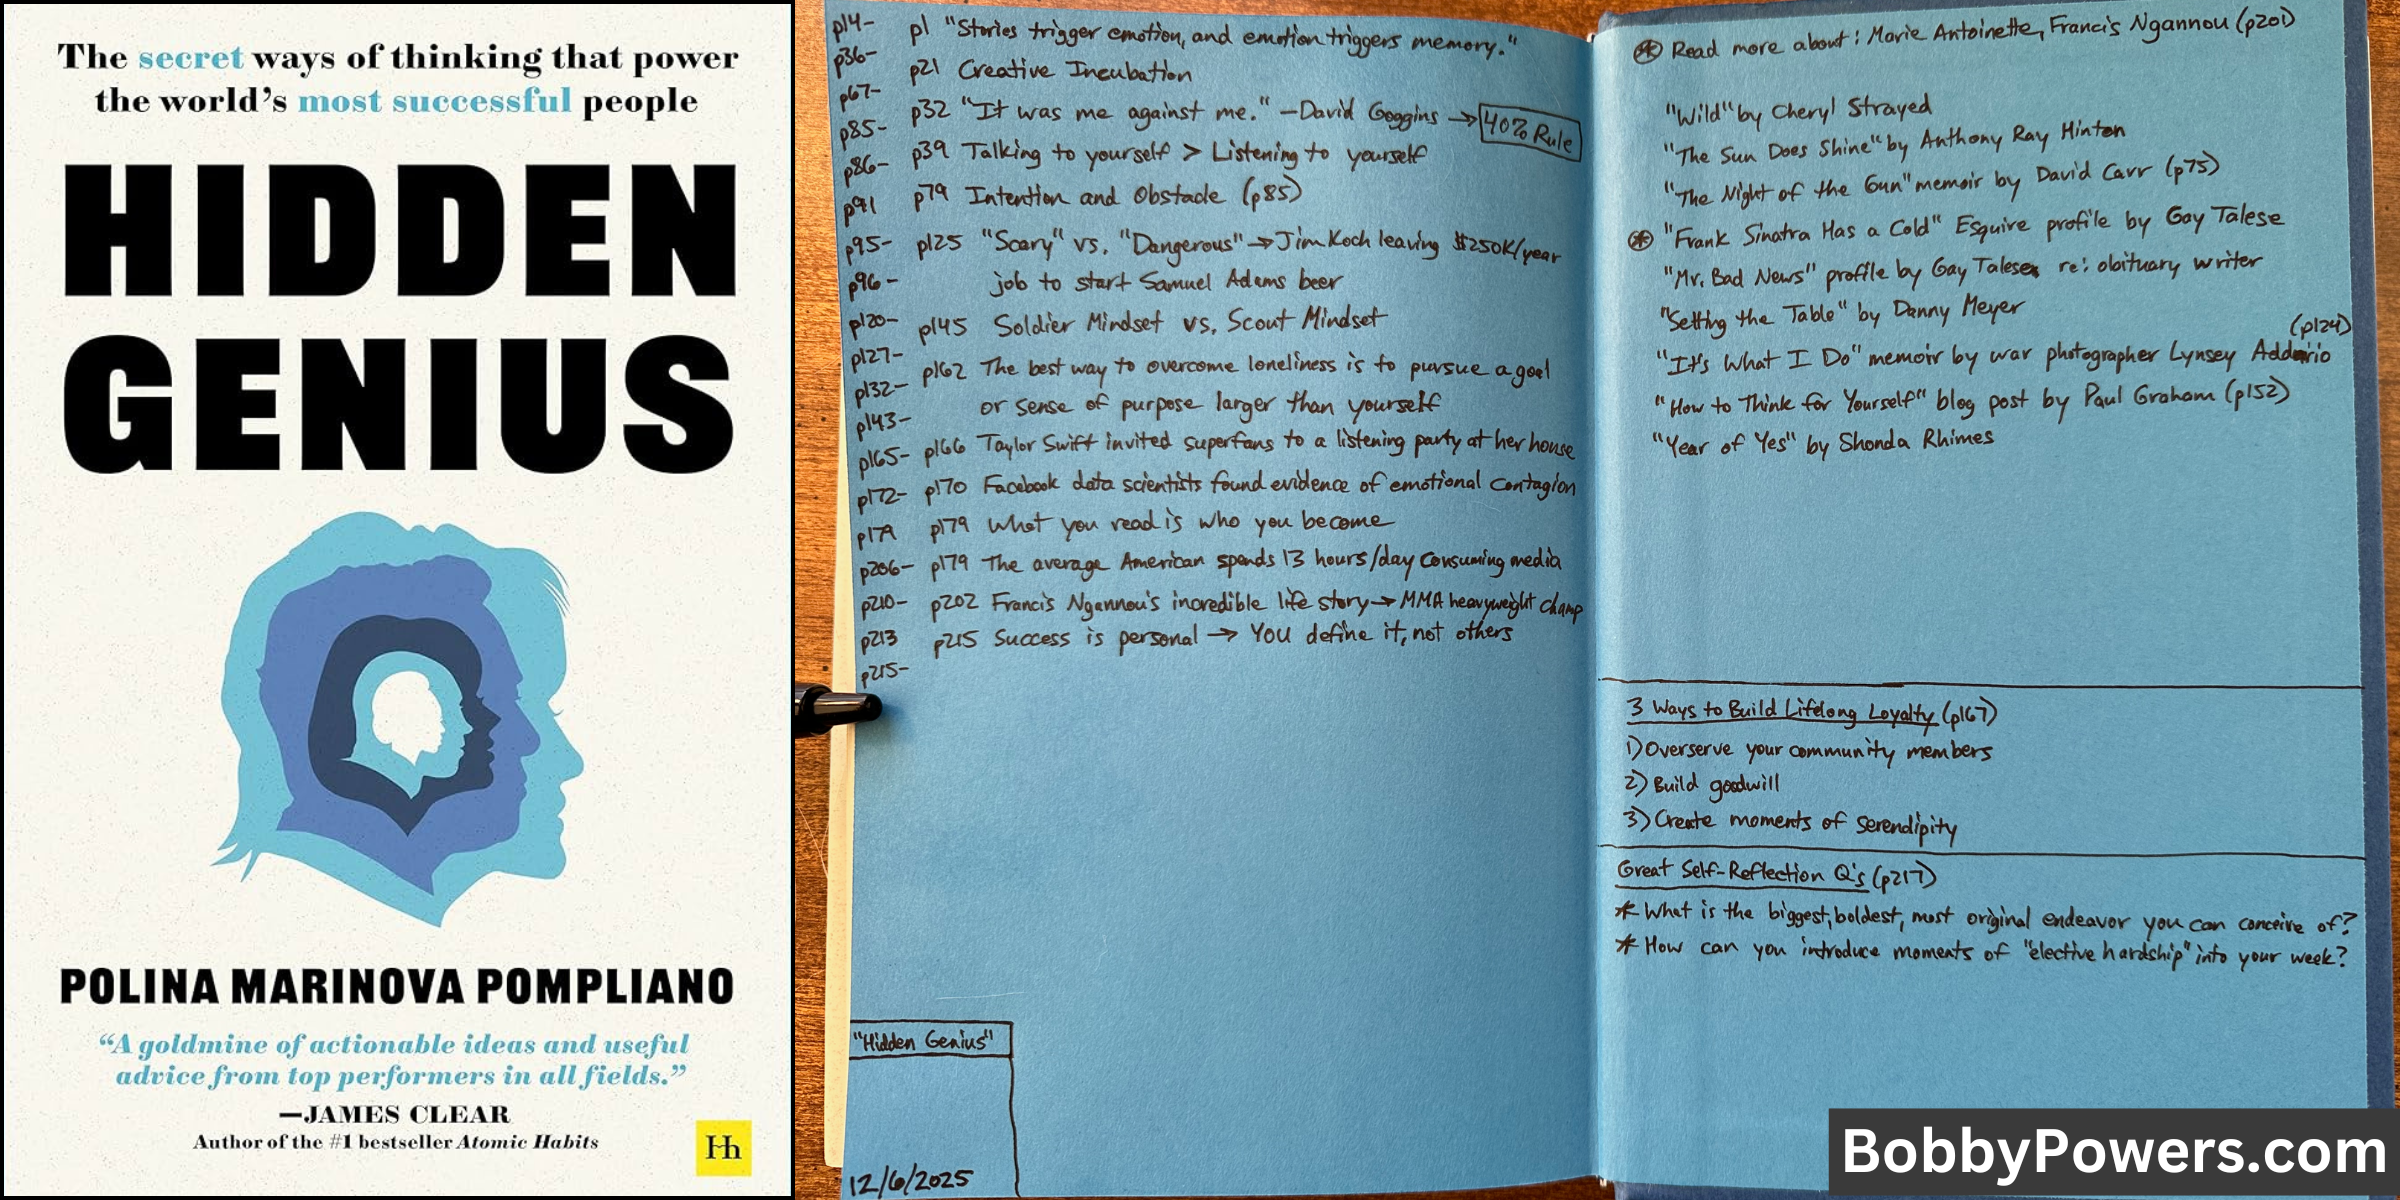 The secret ways of thinking that power
the world's most successful people
HIDDEN
GENIUS
POLINA MARINOVA POMPLIANO
"A goldmine of actionable ideas and useful
advice from top performers in all fields."
—JAMES CLEAR
Author of the #1 bestseller Atomic Habits
Hh
p14-
p36-
p67-
p85-
p86-
p91
p95-
p96-
p120-
p127-
p132-
p143-
p165-
p172-
p179
p206-
p210-
p213
p215-
p1 "Stories trigger emotion, and emotion triggers memory."
p21 Creative Incubation
p32 "It was me against me." -David Goggins → 40% Rule
p39 Talking to yourself > Listening to yourself
p79 Intention and Obstacle (p85)
p125 "Scary" vs. "Dangerous" → Jim Koch leaving $250K/year
job to start Samuel Adams beer
p145 Soldier Mindset vs. Scout Mindset
p162 The best way to overcome loneliness is to pursue a goal
or sense of purpose larger than yourself
p166 Taylor Swift invited superfans to a listening party at her house
p170 Facebook data scientists found evidence of emotional contagion
p179 What you read is who you become
p179 The average American spends 13 hours/day consuming media
p202 Francis Ngannou's incredible life story → MMA heavyweight champ
p215 Success is personal → YOU define it, not others
"Hidden Genius"
12/6/2025
* Read more about: Marie Antoinette, Francis Ngannou (p201)
"Wild" by Cheryl Strayed
"The Sun Does Shine" by Anthony Ray Hinton
"The Night of the Gun" memoir by David Carr (p75)
* "Frank Sinatra Has a Cold" Esquire profile by Gay Talese
"Mr. Bad News" profile by Gay Talese re: obituary writer
"Setting the Table" by Danny Meyer
(p124)
"It's What I Do" memoir by war photographer Lynsey Addario
"How to Think for Yourself" blog post by Paul Graham (p152)
"Year of Yes" by Shonda Rhimes
3 Ways to Build Lifelong Loyalty (p167)
1) Overserve your community members
2) Build goodwill
3) Create moments of serendipity
Great Self-Reflection Q's (p217)
* What is the biggest, boldest, most original endeavor you can conceive of?
* How can you introduce moments of "elective hardship" into your week?
BobbyPowers.com